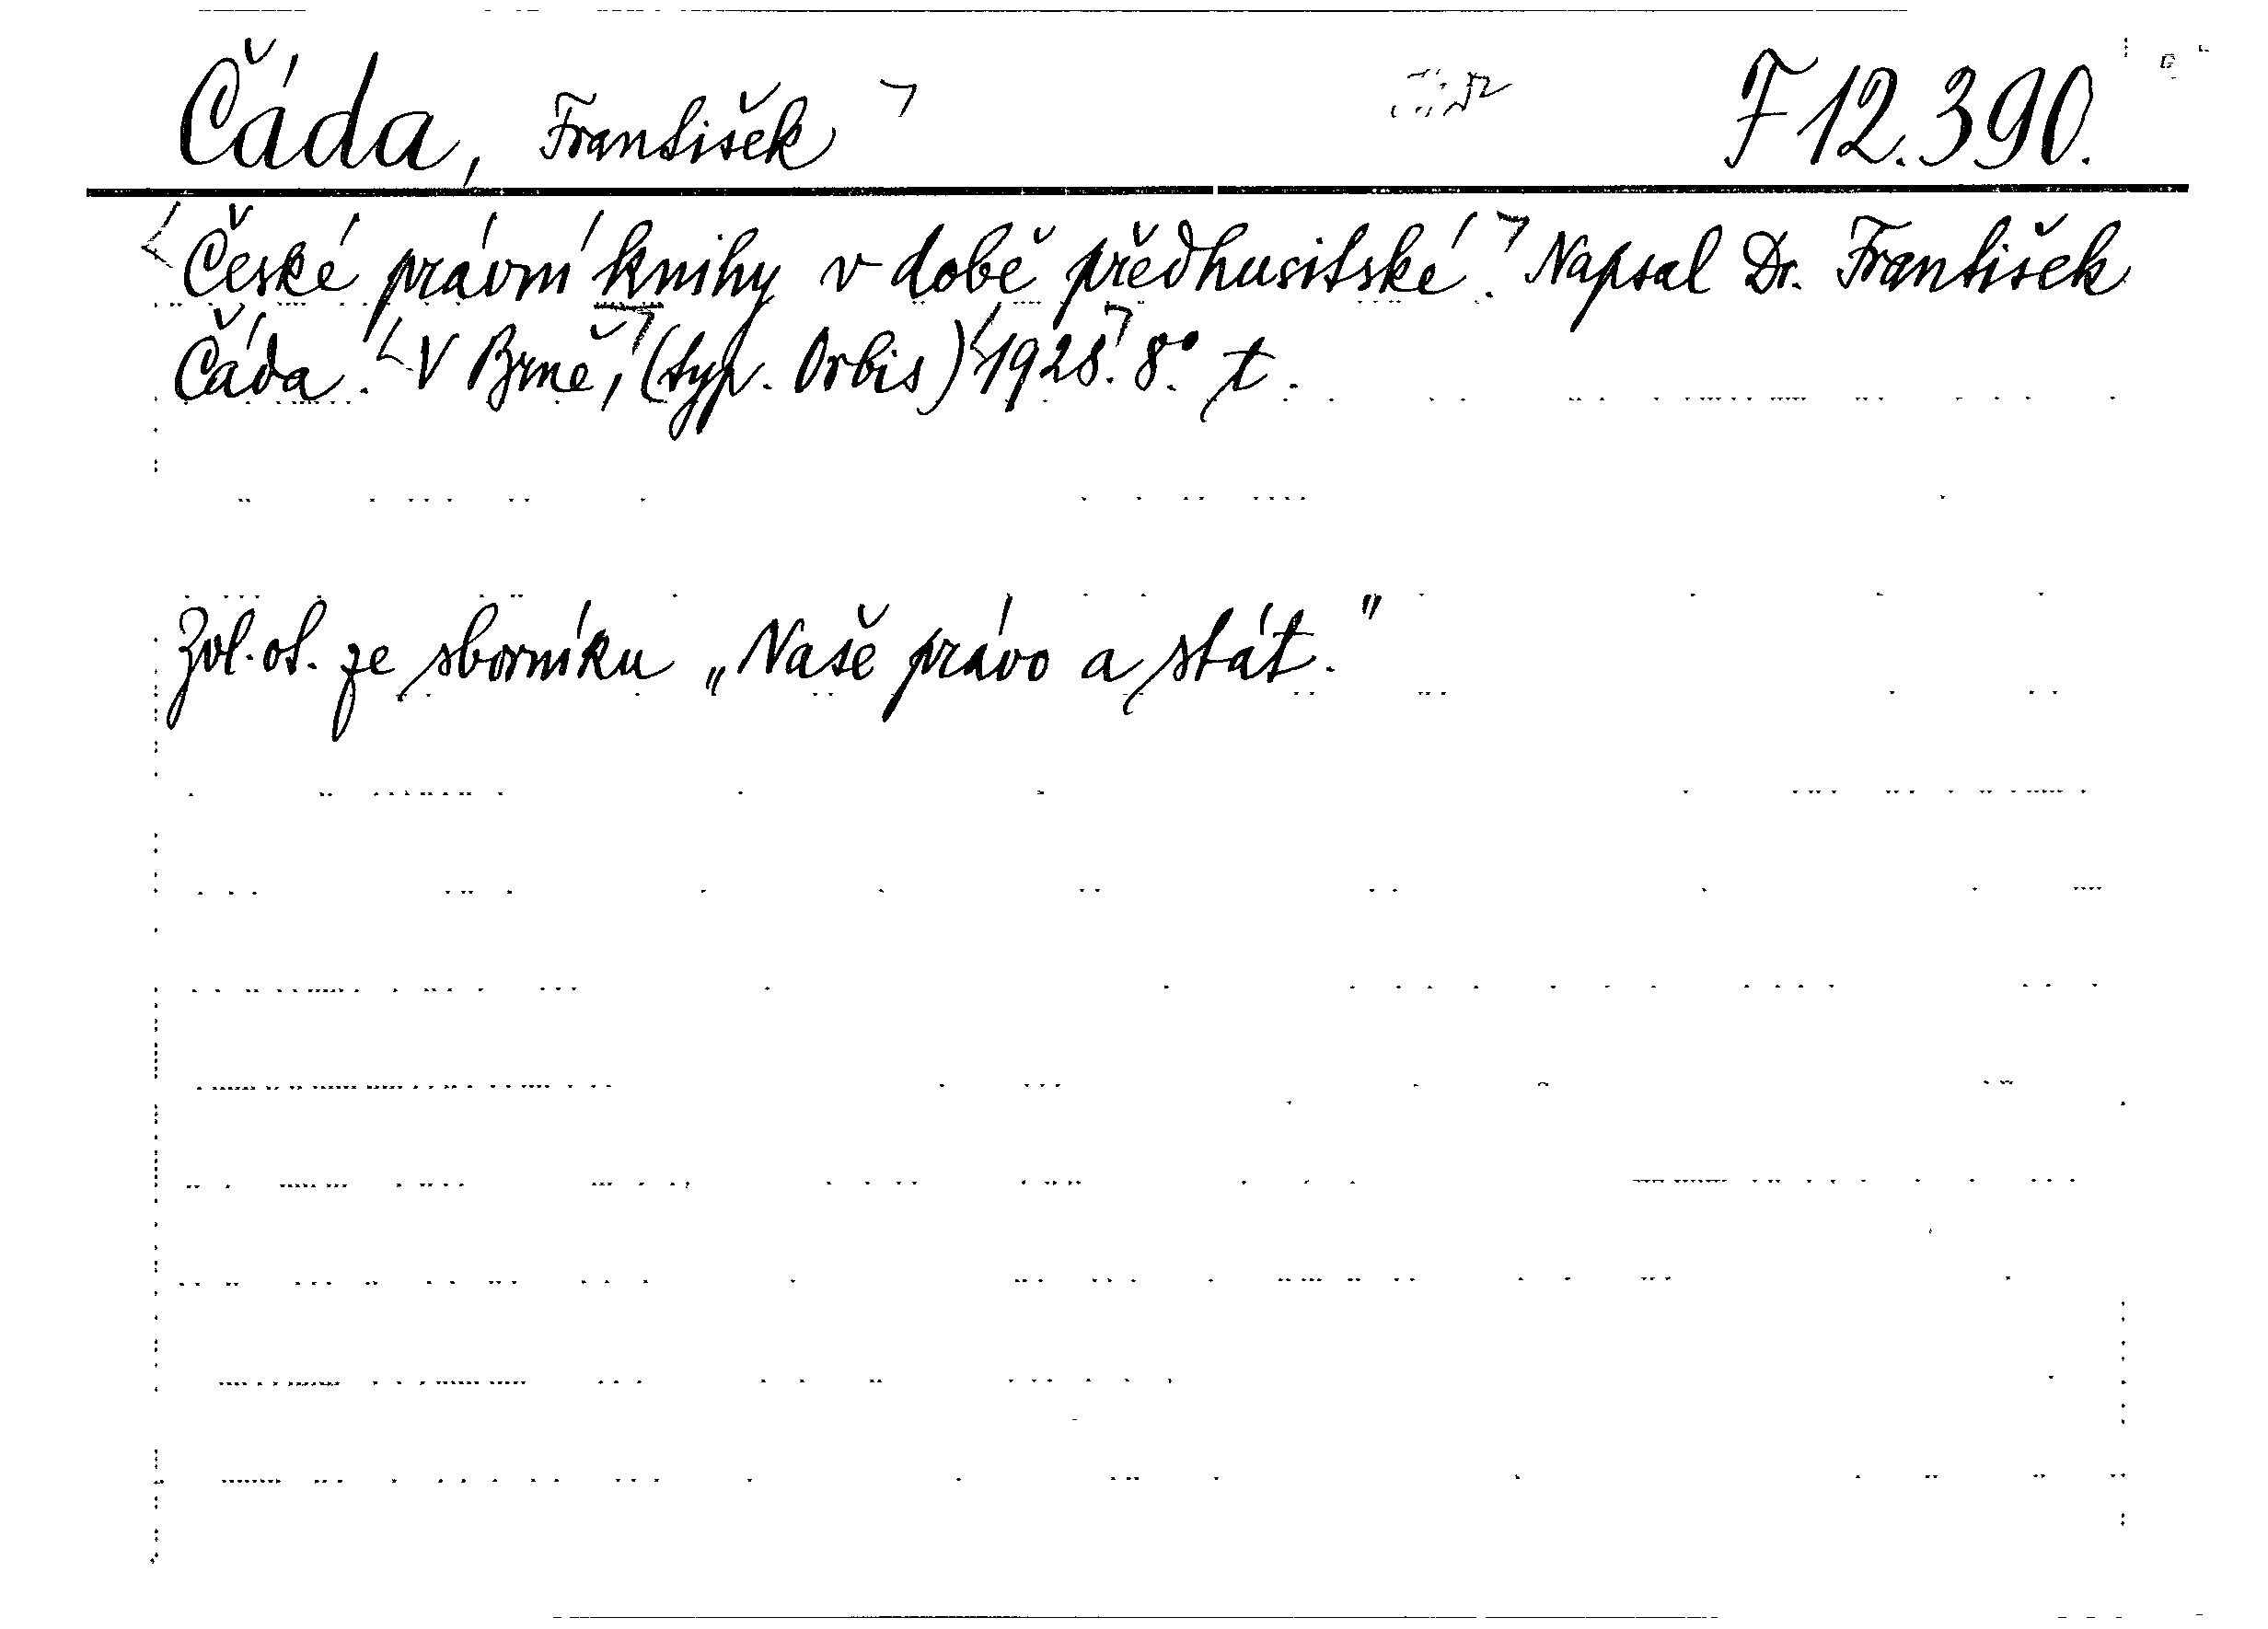 Čáda, František F 12.390.
České právní knihy v době předhusitské. Napsal Dr. František
Čáda. V Brně, (typ. Orbis) 1928. 8.° t.
Zvl. ot. ze sborníku „Naše právo a stát."